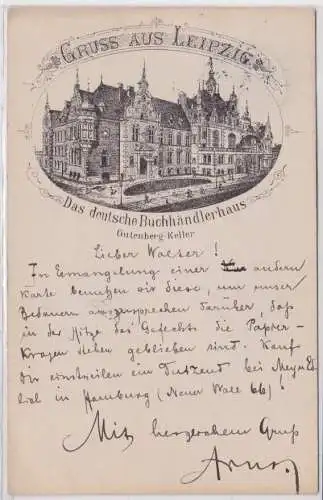 GRUSS AUS LEIPZIG
Das deutsche Buchhändlerhaus
Gutenberg-Keller
Lieber Walzer!
In Ermangelung einer andern
Karte benutzen wir diese, um unser
Bedauern auszusprechen darüber, daß
in der Hitze des Gefechts die Papier-
Kragen stehen geblieben sind. Kauf
dir einstweilen ein Dutzend bei Mey
in Hamburg (Neuer Wall 66)!
Mit herzlichem Gruß